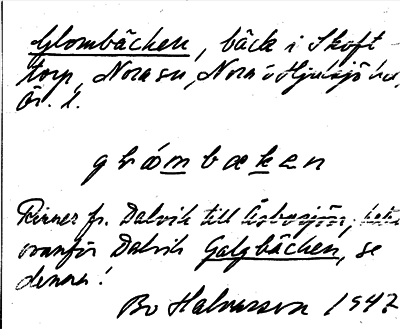 Glombäcken, bäck i Skoft
torp, Nora sn, Nora o Hjulsjö hd,
Ör. l.
glómbækεn
Rinner fr. Dalvik till
ovanför Dalvik Galgbäcken, se
denna!
Bo Halvarsson 1947